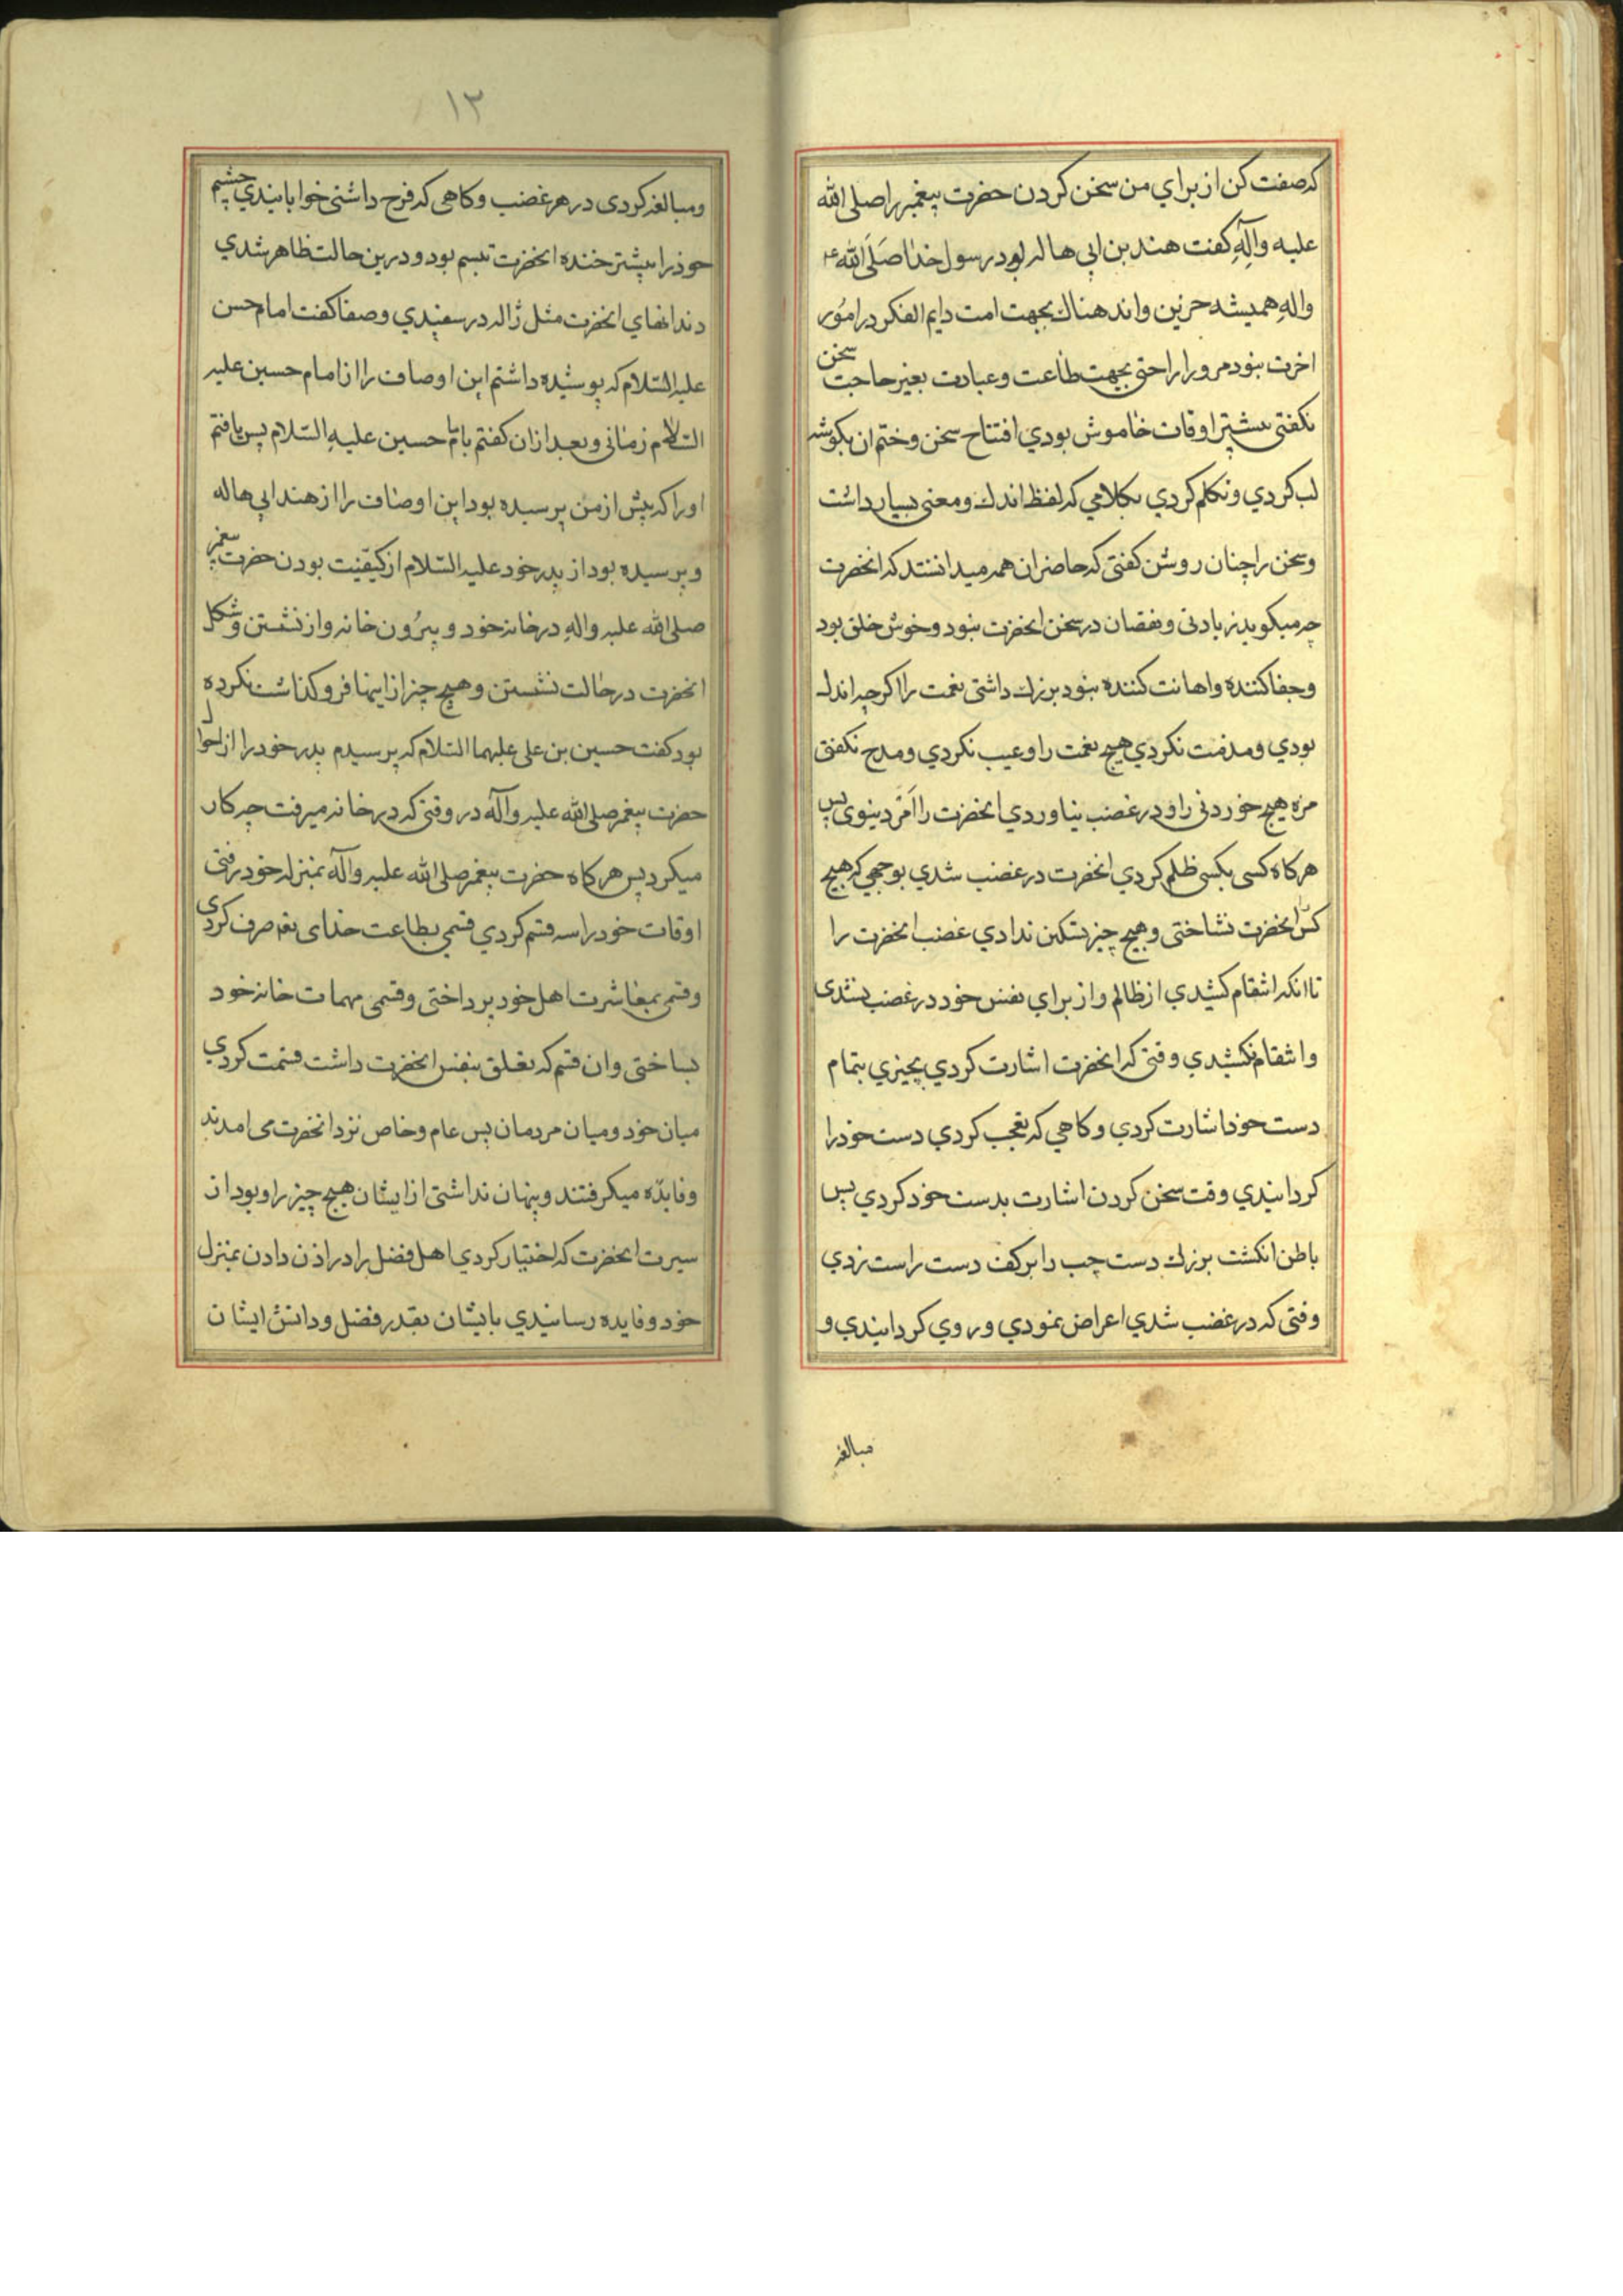 که صفت کن از براي من سخن کردن حضرت پیغمبر را صلی الله
علیه وآلِهِ کفت هند بن ابي هاله بود رسول خدا صَلَی الله ع
والهِ همیشه حزین واندهناك بجهت امت دایم الفکر در امُور
اخرت نبود مرورا راحتی بجهت طاعت وعبادت بغیر حاجت سخن
نکفتی بیشتر اوقات خاموش بودي افتتاح سخن وختم ان بکوشه
لب کردي وتکلم کردي بکلامي که لفظ اندك ومعنی بسیار داشت
وسخن را چنان روشن کفتی که حاضران همه میدانستند که انحضرت
چه میکوید زیادتی ونقصان در سخن انحضرت نبود وخوش خلق بود
وجفا کننده واهانت کننده نبود بزرك داشتی نعمت را اکرچه اندك
بودي ومذمت نکردي هیچ نعمت را وعیب نکردي ومدح نکفتی
مزه هیچ خوردنی را ودر غضب نیاوردي انحضرت را امر دینوی پس
هرکاه کسی بکسی ظلم کردي انحضرت در غضب شدي بوجهي که هیچ
کس انحضرت نشاختی وهیچ چیز تسکین ندادي غضب انحضرت را
تا انکه انتقام کشیدي از ظالم واز براي نفس خود در غضب نشدی
وانتقام نکشیدي وقتی که انحضرت اشارت کردي بچیزي بتمام
دست خود اشارت کردي وکاهي که تعجب کردي دست خود را
کردانیدي وقت سخن کردن اشارت بدست خود کردي پس
باطن انکشت بزرك دست چپ را بر کف دست راست زدي
وقتی که در غضب شدي اعراض نمودي وروي کردانیدي و
مبالغه
۱۳
ومبالغه کردی در هر غضب وکاهی که فرح داشتی خوابانیدي چشم
خود را بیشتر خنده انحضرت تبسم بود ودرین حالت ظاهر شدي
دندانهاي انحضرت مثل ژاله در سفیدي وصفا کفت امام حسن
علیه السّلام که پوشیده داشتم این اوصاف را از امام حسین علیه
السّلام زمانی وبعد از ان کفتم با امام حسین علیهِ السّلام پس یافتم
اورا که پیش از من پرسیده بود این اوصاف را از هند ابي هاله
وپرسیده بود از پدر خود علیه السّلام از کیفیّت بودن حضرت پیغمبر
صلی الله علیه والهِ در خانه خود وبیرُون خانه واز نشستن وشکل
انحضرت در حالت نشستن وهیچ چیز از اینها فرو کذاشت نکرده
بود کفت حسین بن علی علیهما السّلام که پرسیدم پدر خود را از احوال
حضرت پیغمبر صلی الله علیه وآله در وقتی که در خانه میرفت چه کار
میکرد پس هرکاه حضرت پیغمبر صلی الله علیه وآله بمنزله خود رفتی
اوقات خود را سه قسم کردي قسمي بطاعت خدای تعه صرف کردی
وقسمی بمعاشرت اهل خود پرداختی وقسمی مهمات خانه خود
بساختی وان قسم که تعلق بنفس انحضرت داشت قسمت کردي
میان خود ومیان مردمان پس عام وخاص نزد انحضرت می امدند
وفایدّه میکرفتند وپنهان نداشتی از ایشان هیچ چیز را وبود از
سیرت انحضرت که اختیار کردي اهل فضل را در اذن دادن بمنزل
خود وفایده رسانیدي بایشان بقدر فضل ودانش ایشان